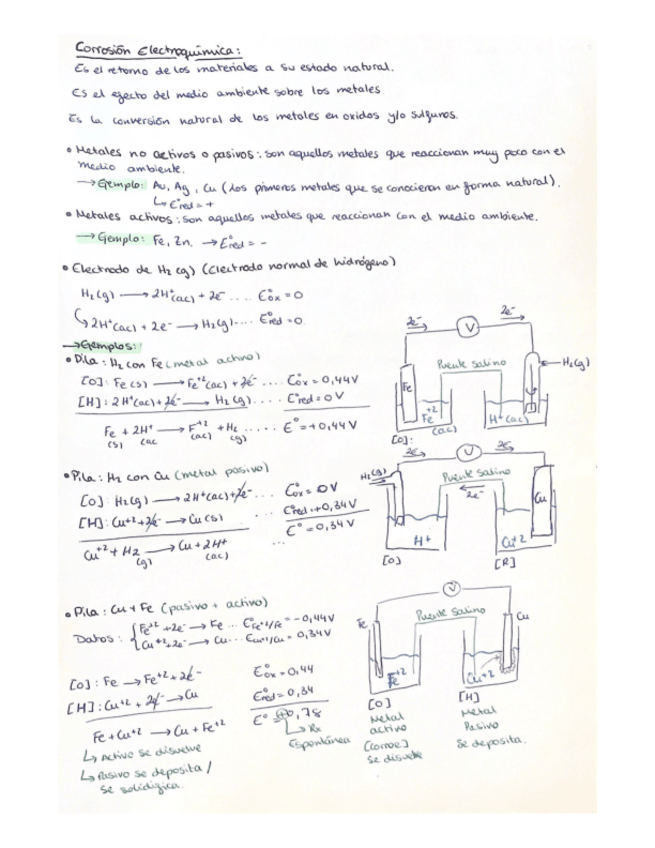 Corrosión Electroquímica:
Es el retorno de los materiales a su estado natural.
Es el efecto del medio ambiente sobre los metales
Es la conversión natural de los metales en oxidos y/o sulfuros.
• Metales no activos o pasivos: son aquellos metales que reaccionan muy poco con el
medio ambiente.
→ Ejemplo: Au, Ag, Cu (Los primeros metales que se conocieron en forma natural).
↳ E°red = +
• Metales activos: son aquellos metales que reaccionan con el medio ambiente.
→ Ejemplo: Fe, Zn. → E°red = -
• Electrodo de H2 (g) (Electrodo normal de hidrógeno)
H2(g) → 2H+(ac) + 2e- .... E°ox = 0
↳ 2H+(ac) + 2e- → H2(g).... E°red = 0
→ Ejemplos:
• Pila: H2 con Fe (metal activo)
[O]: Fe(s) → Fe+2(ac) + 2e- .... E°ox = 0,44V
[H]: 2H+(ac) + 2e- → H2(g).... E°red = 0V
Fe + 2H+ → F+2 + H2 ..... E° = +0,44V
(s) (ac (ac) (g)
2e- 2e-
V
Puente Salino
H2(g)
Fe
Fe+2
(ac)
H+(ac)
[O]:
• Pila: H2 con Cu (metal pasivo)
[O]: H2(g) → 2H+(ac) + 2e- ... E°ox = 0V
[H]: Cu+2 + 2e- → Cu(s) ... E°red = +0,34V
Cu+2 + H2 → Cu + 2H+ ... E° = 0,34V
(g) (ac)
2e- V 2e-
H2(g)
Puente Salino
2e-
Cu
H+
Cu+2
[O] [R]
• Pila: Cu + Fe (pasivo + activo)
Datos: { Fe+2 + 2e- → Fe ... E°Fe+2/Fe = -0,44V
Cu+2 + 2e- → Cu... E°Cu+2/Cu = 0,34V
[O]: Fe → Fe+2 + 2e- E°ox = 0,44
[H]: Cu+2 + 2e- → Cu E°red = 0,34
Fe + Cu+2 → Cu + Fe+2 E° = +0,78
↳ Rx
Espontánea
↳ Activo se disuelve
↳ Pasivo se deposita /
se solidifica.
V
Fe
Puente Salino
Cu
Fe+2
Cu+2
[O] [H]
Metal
activo
[Corroe]
Se disuelve
Metal
Pasivo
Se deposita.